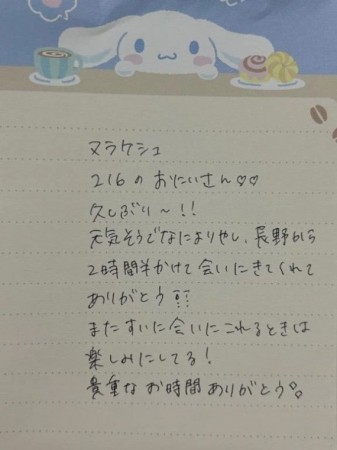 マラケシュ
216のおにいさん♡♡
久しぶり〜!!
元気そうでなによりやし、長野から
2時間半かけて会いにきてくれて
ありがとう!!
またすいに会いにこれるときは
楽しみにしてる!
貴重なお時間ありがとう